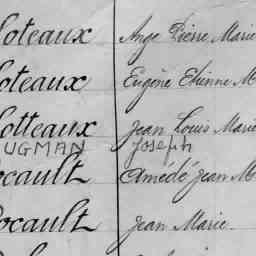 loteaux Ange Pierre Marie
loteaux Eugène Etienne M
lotteaux Jean Louis Marie
UGMAN Joseph
ocault Amédé Jean M
ocault Jean Marie